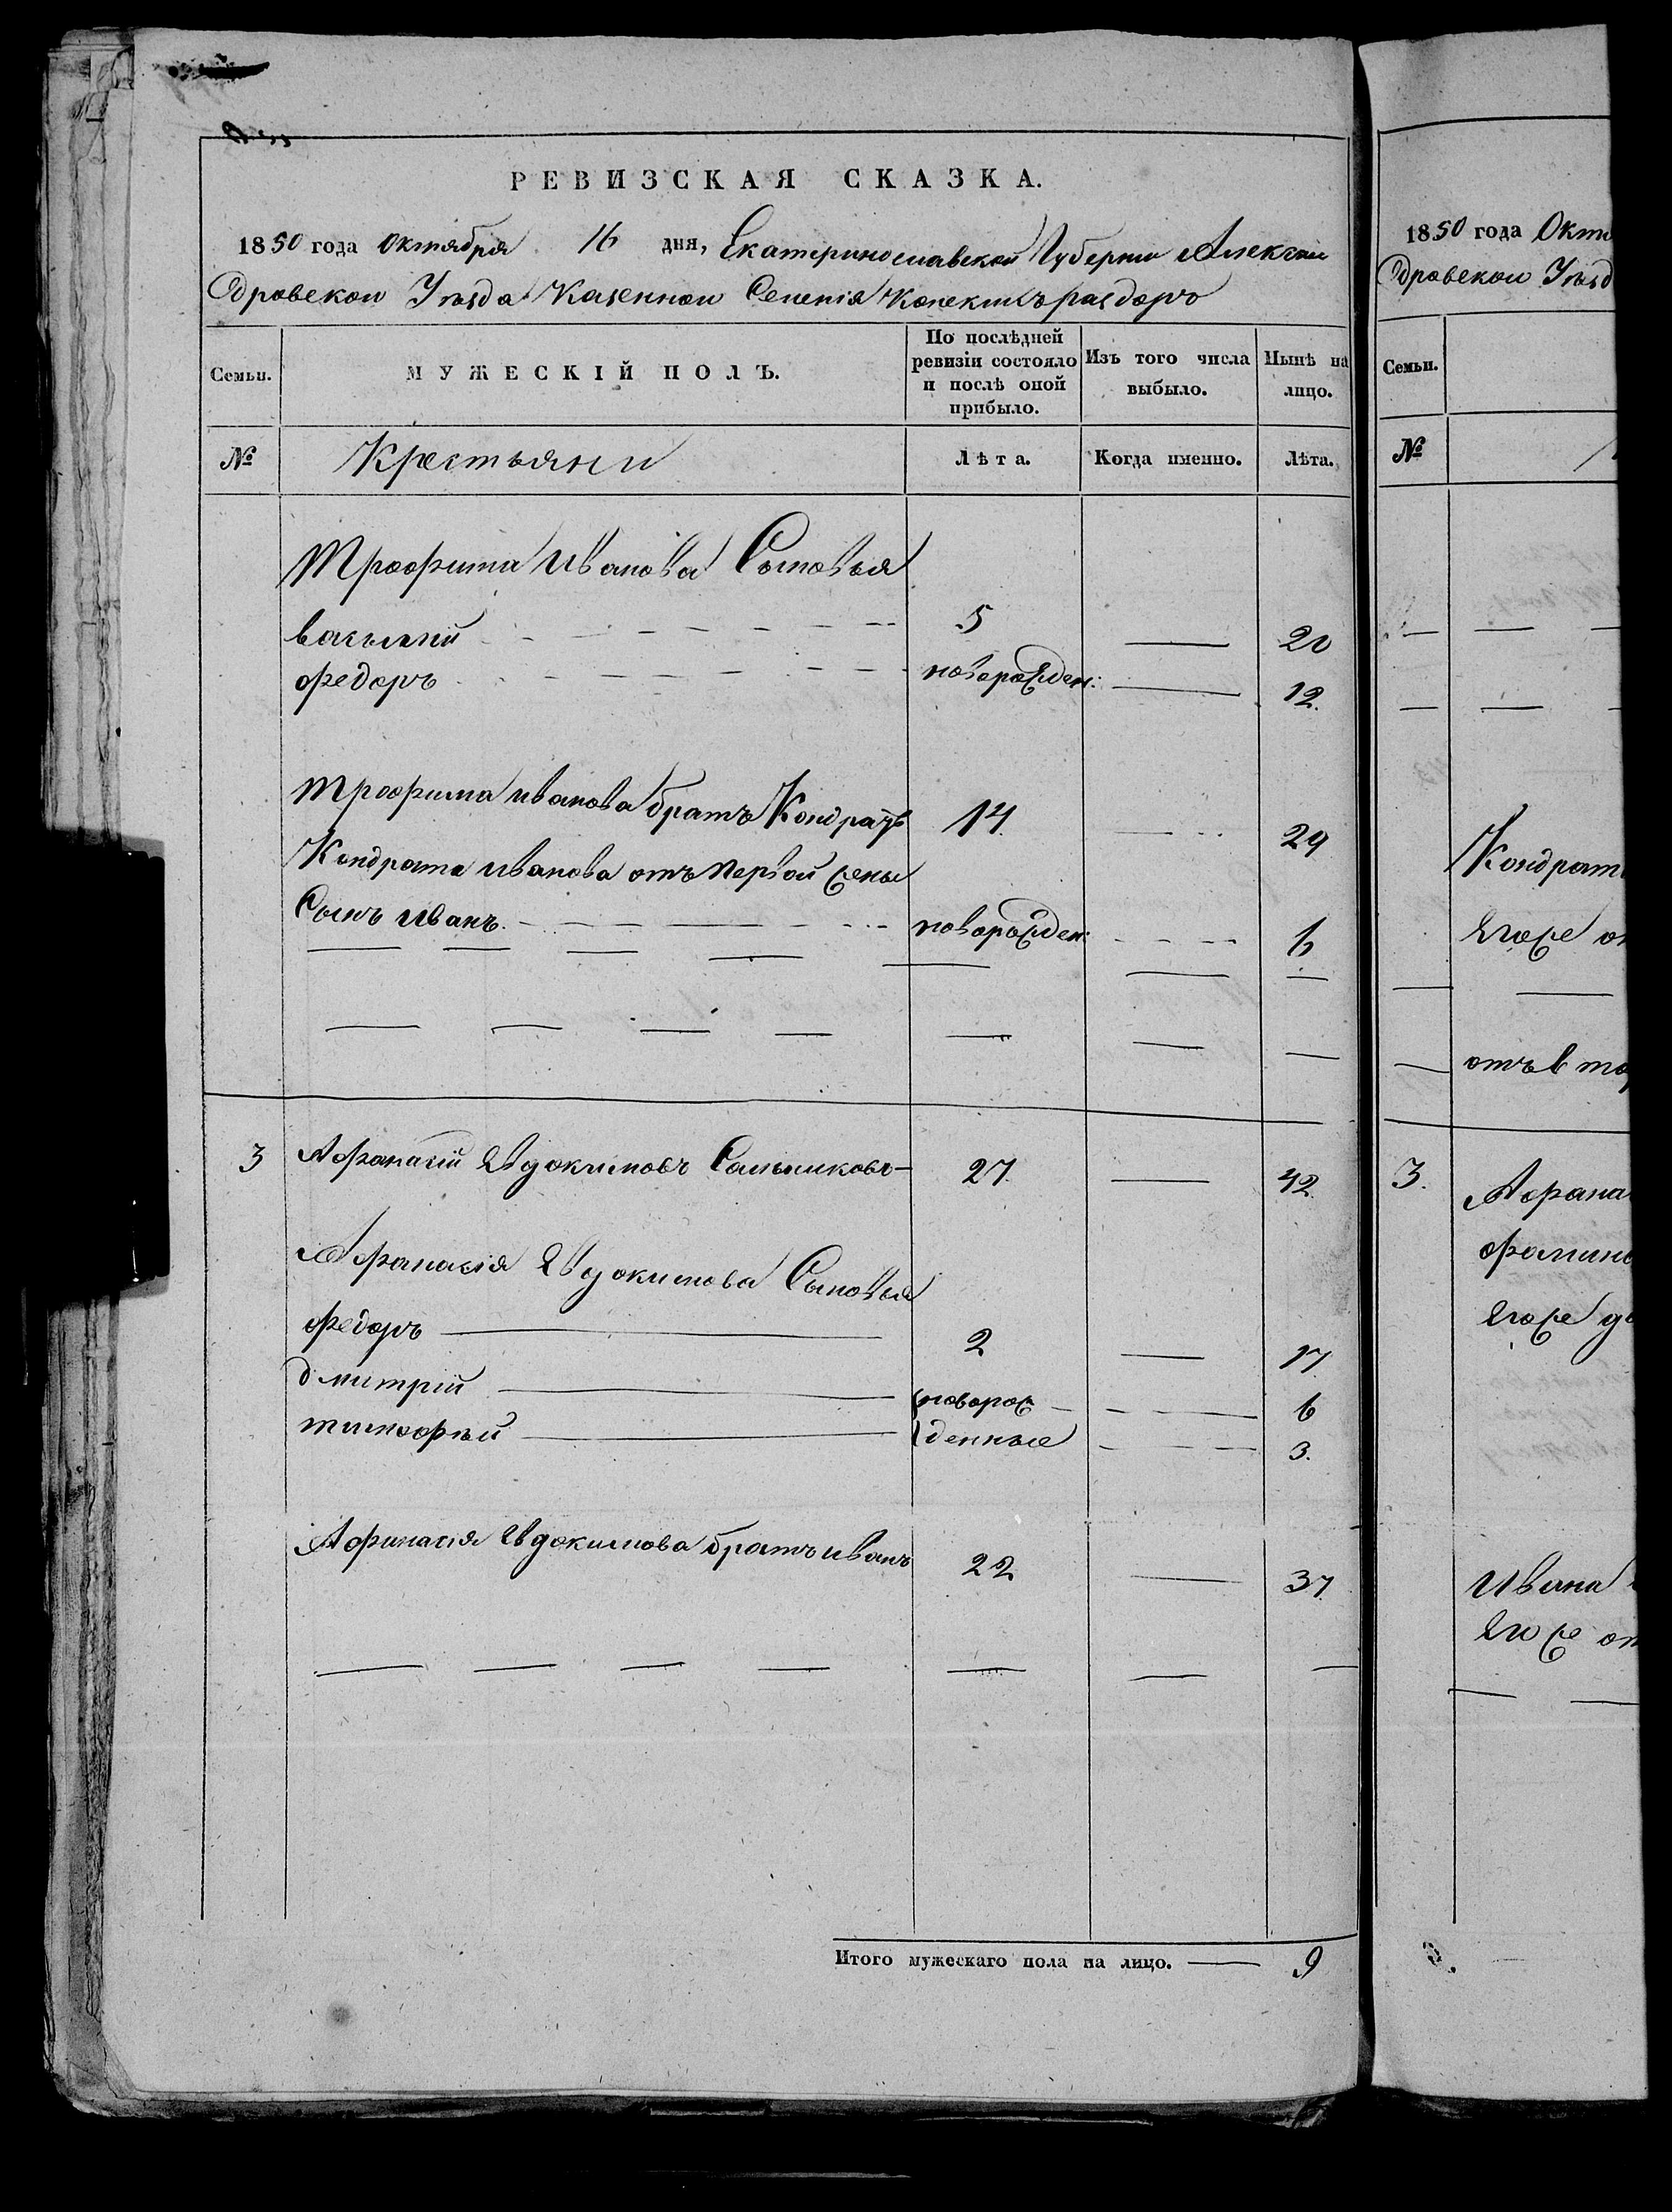 РЕВИЗСКАЯ СКАЗКА.
1850 года Октября 16 дня, Екатеринославской Губернии Алексан
дровской Уезда Казенной Селенія Конскихъ раздоръ
Семьи.
МУЖЕСКІЙ ПОЛЪ.
По послѣдней ревизіи состояло и послѣ оной прибыло.
Изъ того числа выбыло.
Нынѣ на лицо.
№ Крестьяни Лѣта. Когда именно. Лѣта.
Трофима Иванова Сыновья
василий 5 20
федоръ новорожден: 12.
трофима иванова братъ Кондратъ 14. 29
Кондрата иванова отъ первой жены
Сынъ иванъ новорожден: 6
3 Афанасій Евдокимовъ 27. 42.
Афанасія Евдокимова Сыновья
федоръ 2 17.
дмитрій новорож 6
тимофей денные 3.
Афанасія Евдокимова братъ иванъ 22 37.
Итого мужескаго пола на лицо. 9
1850 года Октя
дровской Уезд
Семьи.
№
Кондрат
Егоже
отъ в тор
3. Афана
Егоже
Ивана
Егоже